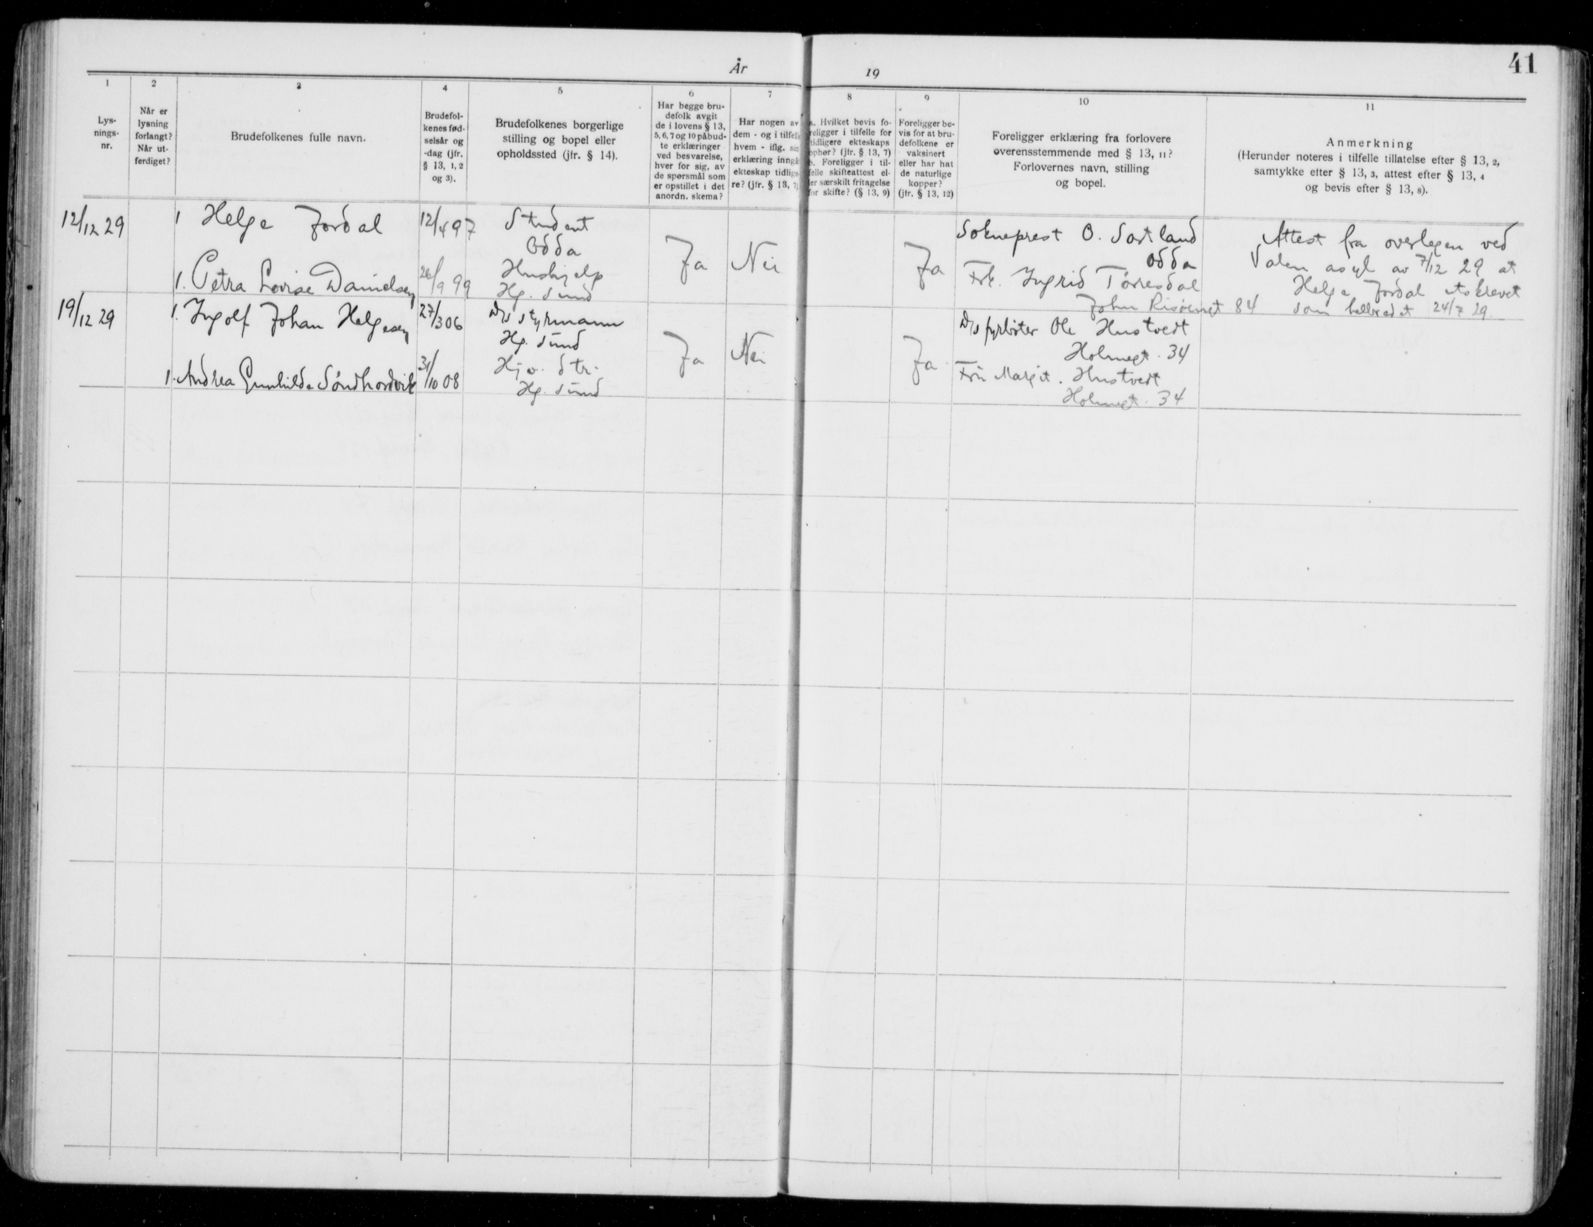 År 19
41
1 2 3 4 5 6 7 8 9 10 11
Lys-
nings-
nr.
Når er
lysning
forlangt?
Når ut-
ferdiget?
Brudefolkenes fulle navn.
Brudefol-
kenes fød-
selsår og
-dag (jfr.
§ 13, 1, 2
og 3).
Brudefolkenes borgerlige
stilling og bopel eller
opholdssted (jfr. § 14).
Har begge bru-
defolk avgit
de i lovens § 13,
5, 6, 7 og 10 påbud-
te erklæringer
ved besvarelse,
hver for sig, av
de spørsmål som
er opstillet i det
anordn. skema?
Har nogen av
dem - og i tilfelle
hvem - iflg.
erklæring inngå
ekteskap tidlige
re? (jfr. § 13,
a. Hvilket bevis fo-
religger i tilfelle for
tidligere ekteskaps
ophør? (jfr. § 13, 7)
b. Foreligger i til-
felle skifteattest el-
ler særskilt fritagelse
for skifte? (§ 13, 9)
Foreligger be-
vis for at bru-
defolkene er
vaksinert
eller har hat
de naturlige
kopper?
(jfr. § 13, 12)
Foreligger erklæring fra forlovere
overensstemmende med § 13, 11?
Forlovernes navn, stilling
og bopel.
Anmerkning
(Herunder noteres i tilfelle tillatelse efter § 13, 2,
samtykke efter § 13, 3, attest efter § 13, 4
og bevis efter § 13, 8).
12/12 29
1 Helge Jordal
12/4 97
Student
Odda
1. Petra Lovise Danielsen
26/9 99
Hushjelp
Hg. sund
Ja
Nei
Ja
Sokneprest O. Sortland
Odda
Frk. Ingrid Tørresdal
John Risøensgt 84
Attest fra overlegen ved
Valen asyl av 7/12 29 at
Helge Jordal utskrevet
som helbredet 24/7 29
19/12 29
1. Ingolf Johan Helgesen
27/3 06
D/s styrmann
Hg. sund
1. Andrea Gunhilde Søndhordvik
31/10 08
Hjv. str.
Hg. sund
Ja
Nei
Ja
D/s fyrbøter Ole Hustvedt
Holmegt. 34
Fru Margit. Hustvedt
Holmegt. 34